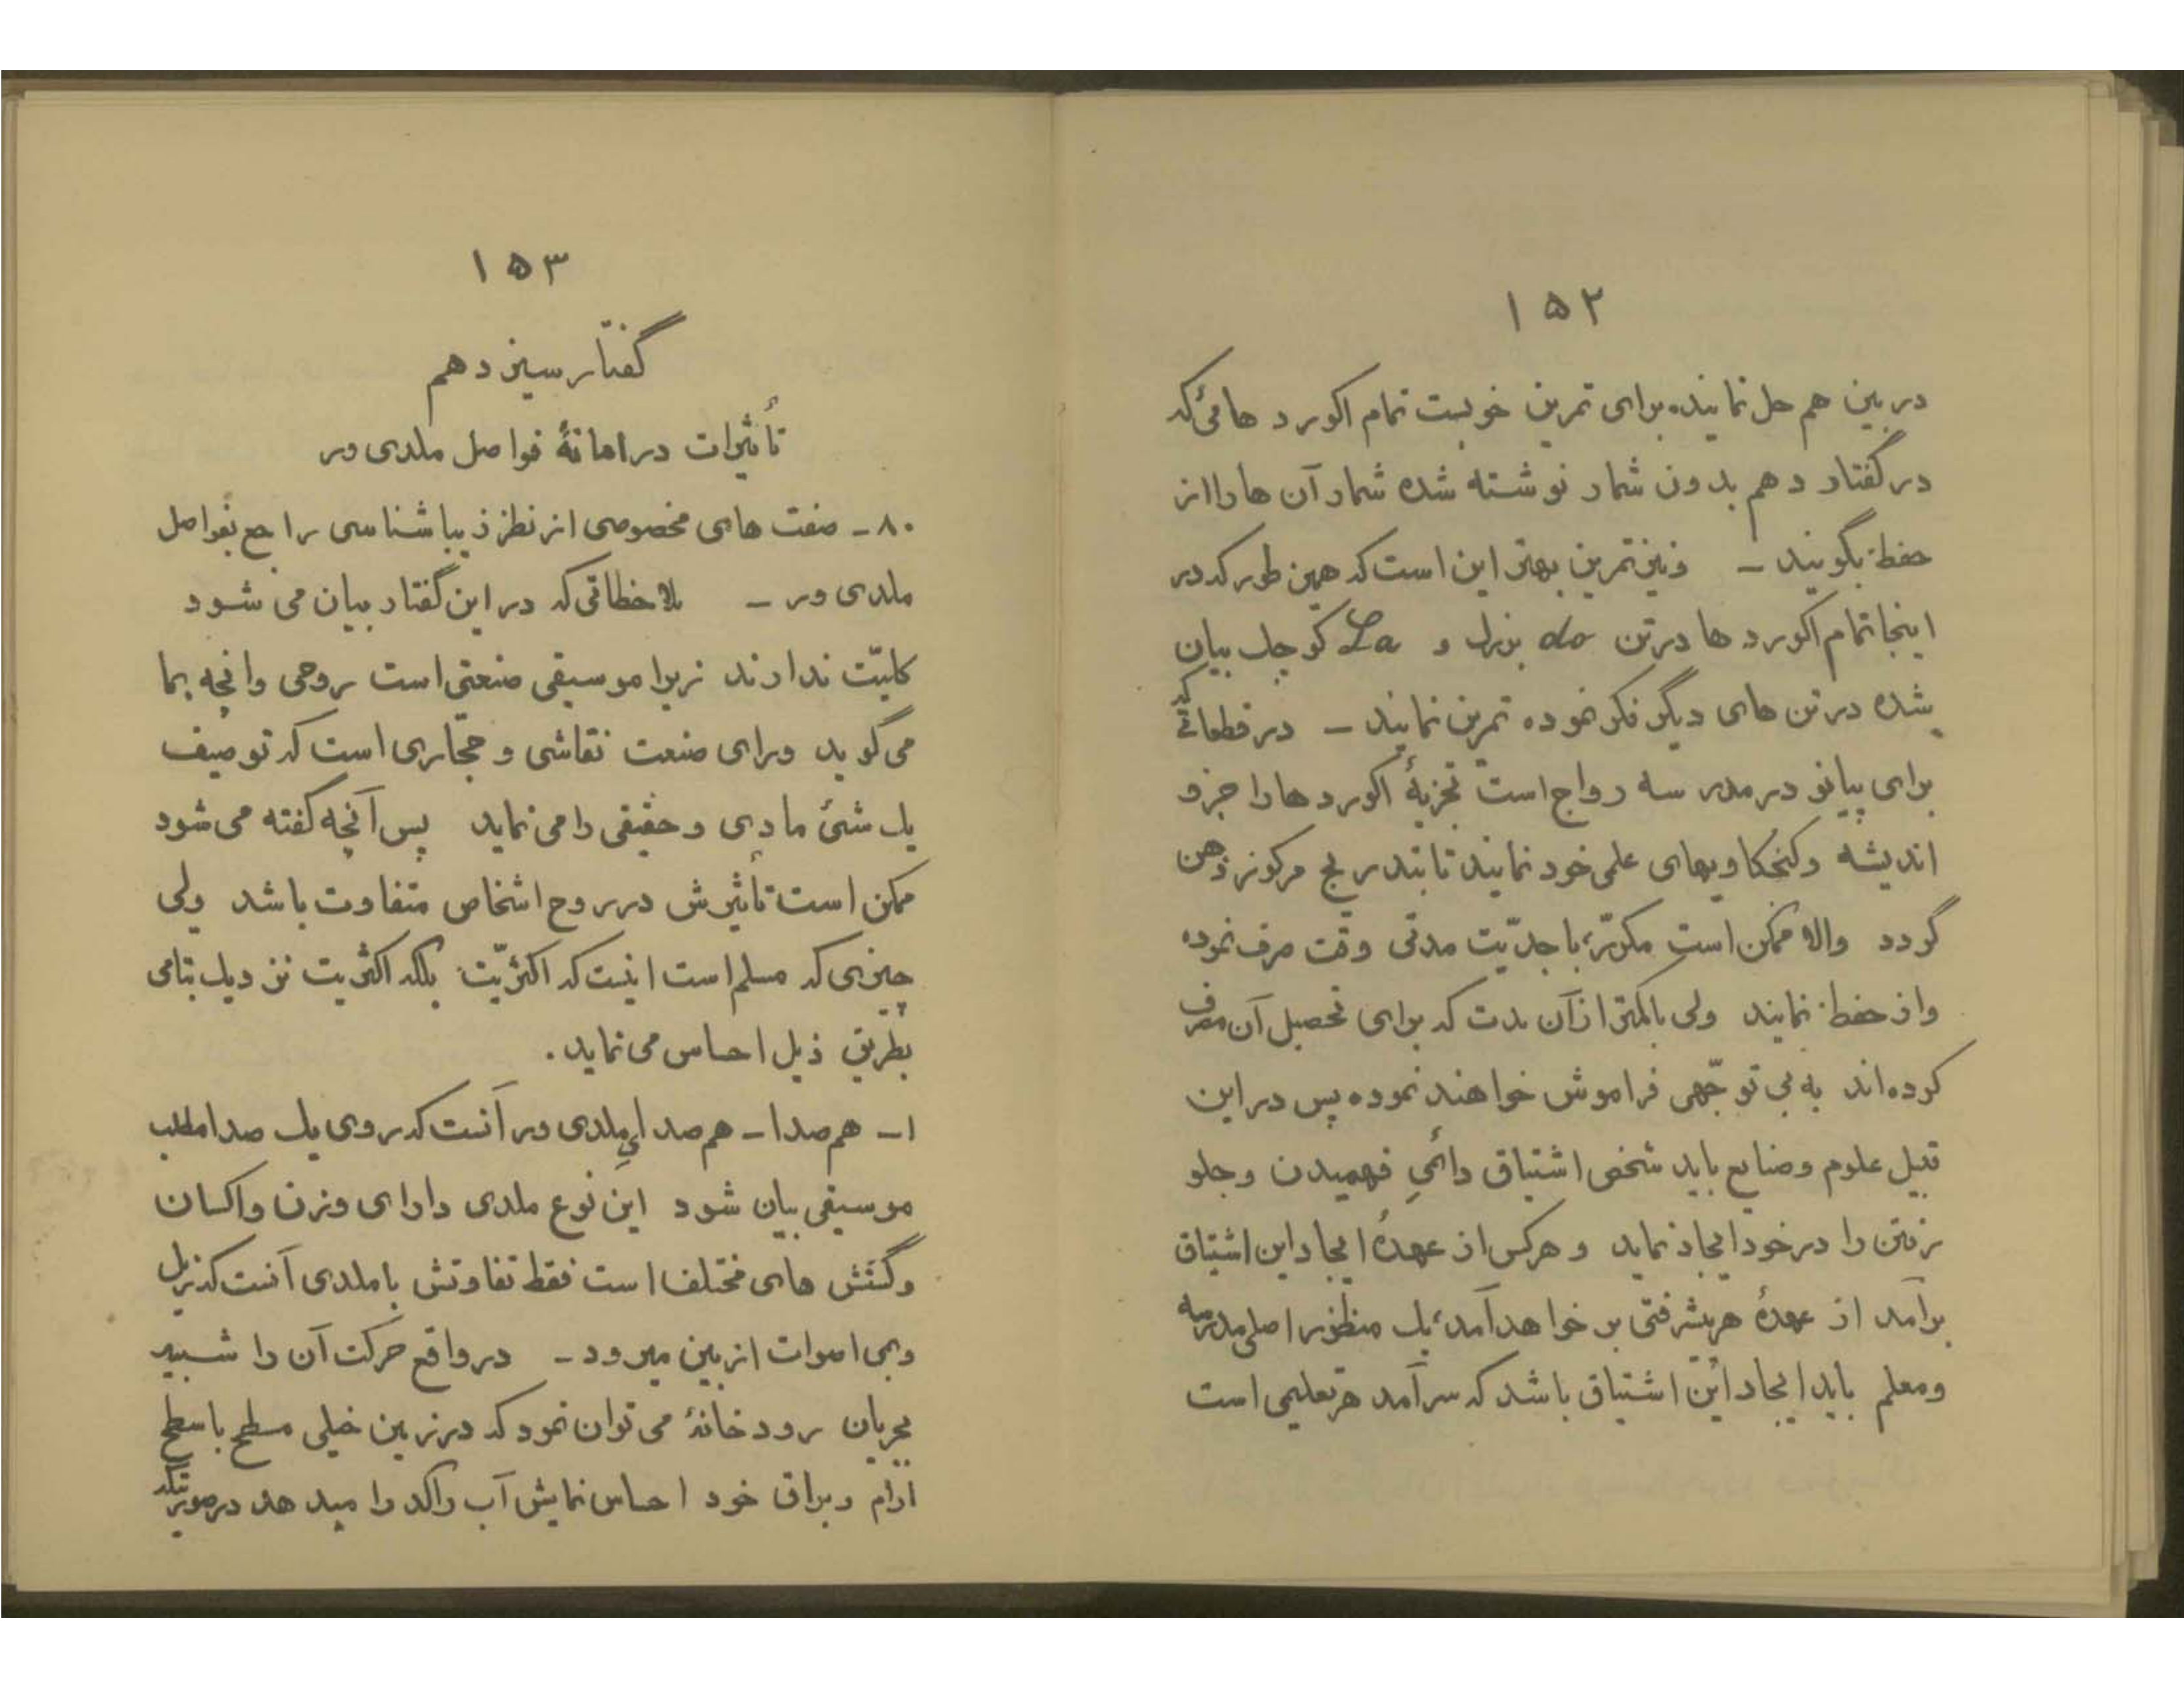 ۱۵۲
در بین هم حل نمایند. برای تمرین خوبست تمام اکورد هائی که
در گفتار دهم بدون شمار نوشته شده شمار آن ها را از
حفظ بگویند – ونیز تمرین بهتر این است که همین طور که در
اینجا تمام اکورد ها در تن do بزرگ و La کوچک بیان
شده در تن های دیگر فکر نموده تمرین نمایند – در قطعاتی که
برای پیانو در مدرسه رواج است تجزیهٔ اکورد ها را جزو
اندیشه و کنجکاویهای علمی خود نمایند تا بتدریج مرکوز ذهن
گردد والا ممکن است مکرّر با جدّیت مدتی وقت صرف نموده
واز حفظ نمایند ولی باکمتر از آن مدت که برای تحصیل آن صرف
کرده اند به بی توجّهی فراموش خواهند نمود. پس در این
قبیل علوم وصنایع باید شخص اشتیاق دائمیِ فهمیدن وجلو
رفتن را در خود ایجاد نماید و هرکس از عهدهٔ ایجاد این اشتیاق
برآمد از عهدهٔ هر پیشرفتی بر خواهد آمد، یک منظور اصلی مدرسه
ومعلم باید ایجاد این اشتیاق باشد که سرآمد هر تعلیمی است
۱۵۳
گفتار سیزدهم
تأثیرات در اماتهٔ فواصل ملدی ور
۸۰ – صفت های مخصوصی از نظر زیباشناسی راجع بفواصل
ملدی ور – ملاحظاتی که در این گفتار بیان می شود
کلیّت ندارند زیرا موسیقی صنعتی است روحی وانچه بما
می گوید ورای صنعت نقاشی و حجّاری است که توصیف
یک شیئ مادی و حقیقی را می نماید پس آنچه گفته می شود
ممکن است تأثیرش در روح اشخاص متفاوت باشد ولی
چیزی که مسلم است اینست که اکثریّت بلکه اکثریت نزدیک بتمامی
بطریق ذیل احساس می نماید.
۱ – هم صدا – هم صدایِ ملدی ور آنست که روی یک صدا مطلب
موسیقی بیان شود این نوع ملدی دارای وزن واکسان
وکشش های مختلف است فقط تفاوتش با ملدی آنست که زیل
وبمی اصوات از بین میرود – در واقع حرکت آن را شبیه
بجریان رودخانهٔ می توان نمود که در زمین خیلی مسطح باسطح
ارام وبراق خود احساس نمایش آب راکد را میدهد در صورتیکه